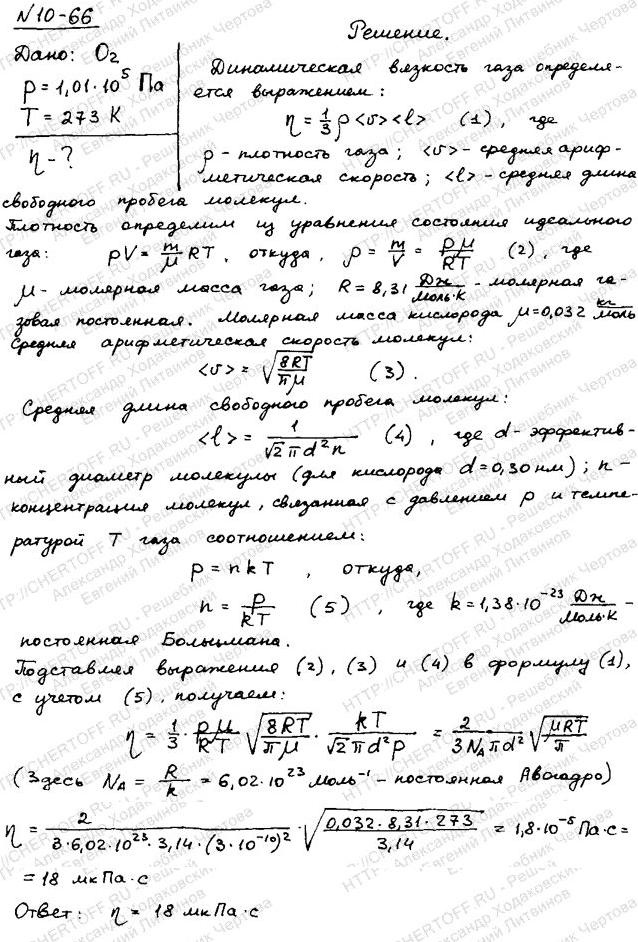 №10-66
Дано: O₂
p = 1,01·10⁵ Па
T = 273 K
η - ?
Решение.
Динамическая вязкость газа определя-
ется выражением:
η = 1/3 ρ <v> <l> (1), где
ρ - плотность газа; <v> - средняя ариф-
метическая скорость; <l> - средняя длина
свободного пробега молекул.
Плотность определим из уравнения состояния идеального
газа: pV = m/μ RT, откуда, ρ = m/V = pμ/RT (2), где
μ - молярная масса газа; R = 8,31 Дж/моль·К - молярная га-
зовая постоянная. Молярная масса кислорода μ=0,032 кг/моль
Средняя арифметическая скорость молекул:
<v> = √(8RT/πμ) (3).
Средняя длина свободного пробега молекул:
<l> = 1/(√2 π d² n) (4), где d - эффектив-
ный диаметр молекулы (для кислорода d=0,30 нм); n -
концентрация молекул, связанная с давлением p и темпе-
ратурой T газа соотношением:
p = nkT, откуда,
n = p/kT (5), где k = 1,38·10⁻²³ Дж/моль·К -
постоянная Больцмана.
Подставляя выражения (2), (3) и (4) в формулу (1),
с учетом (5), получаем:
η = 1/3 · pμ/RT √(8RT/πμ) · kT/(√2 π d² p) = 2/(3N_A π d²) √(μRT/π)
(Здесь N_A = R/k = 6,02·10²³ моль⁻¹ - постоянная Авогадро)
η = 2/(3·6,02·10²³·3,14·(3·10⁻¹⁰)²) · √(0,032·8,31·273/3,14) = 1,8·10⁻⁵ Па·с =
= 18 мкПа·с
Ответ: η = 18 мкПа·с
HTTP://CHERTOFF.RU - Решебник Чертова
Александр Ходаковский
Евгений Литвинов